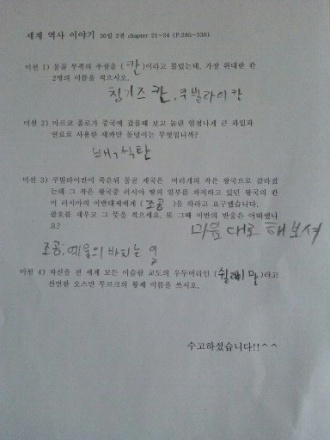 세계 역사 이야기 30일 2권 chapter 21~24 (P.295~338)
미션 1) 몽골 부족의 추장을 (칸)이라고 불렀는데, 가장 위대한 칸
2명의 이름을 적으시오.
칭기즈칸, 쿠빌라이칸
미션 2) 마르코 폴로가 중국에 갔을때 보고 놀란 엄청나게 큰 과일과
연료로 사용한 새까만 돌덩이는 무엇입니까?
배, 석탄
미션 3) 쿠빌라이칸이 죽은뒤 몽골 제국은 여러개의 작은 왕국으로 갈라졌
는데 그 작은 왕국중 러시아 땅의 일부를 차지하고 있던 왕국의 칸
이 러시아의 이반대제에게 (조공)을 하라고 요구했습니다.
괄호를 채우고 그 뜻을 적으세요. 또 그때 이반의 반응은 어떠했나
요?
마음대로 해보셔
조공, 예물의 바치는 일
미션 4) 자신을 전 세계 모든 이슬람 교도의 우두머리인 (쉴레이만)라고
선언한 오스만 투르크의 황제 이름을 쓰시오.
수고하셨습니다!!^^